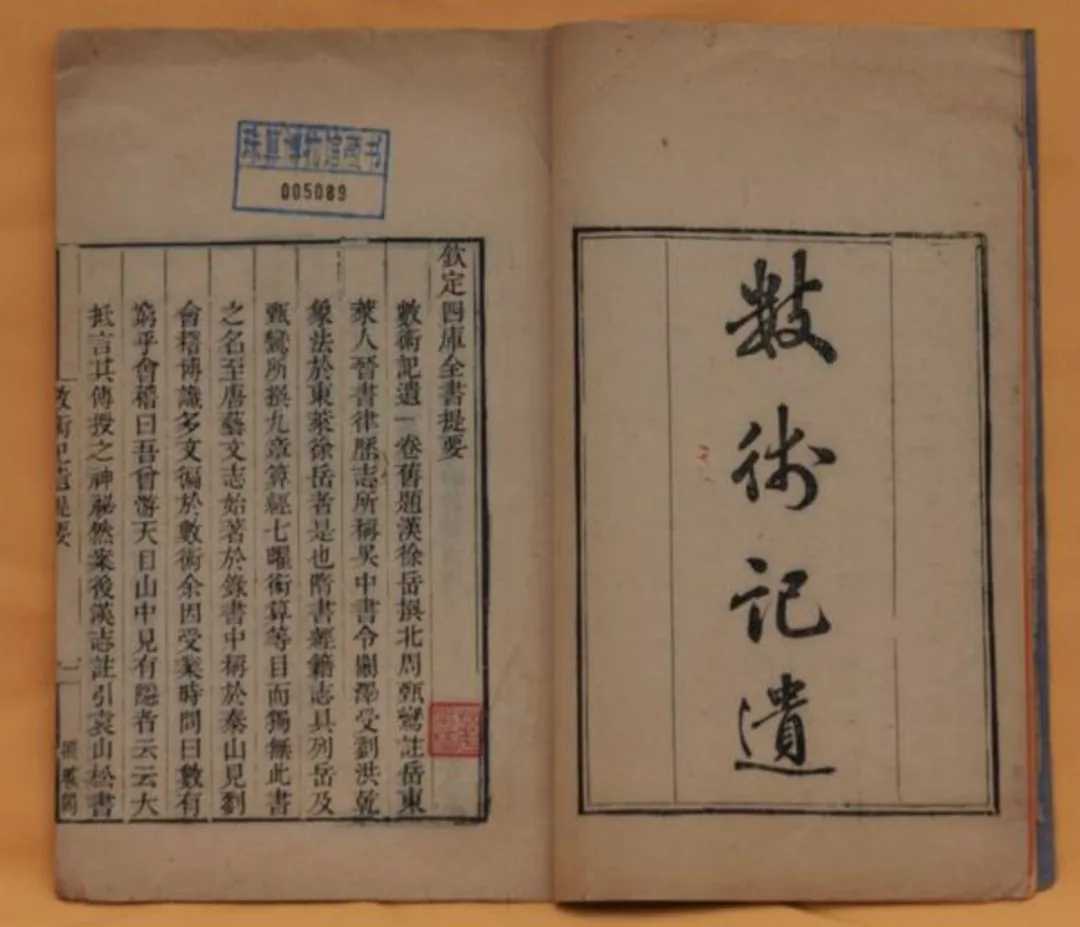 數術記遺
珠算博物馆图书
005089
欽定四庫全書提要
數術記遺一卷舊題漢徐岳撰北周甄鸞註岳東
萊人晉書律歷志所稱吳中書令闞澤受劉洪乾
象法於東萊徐岳者是也隋書經籍志具列岳及
甄鸞所撰九章算經七曜術算等目而獨無此書
之名至唐藝文志始著於錄書中稱於泰山見劉
會稽博識多文徧於數術余因受業時問曰數有
窮乎會稽曰吾曾游天目山中見有隱者云云大
抵言其傳授之神祕然案後漢志註引袁山松書
數術記遺提要
一